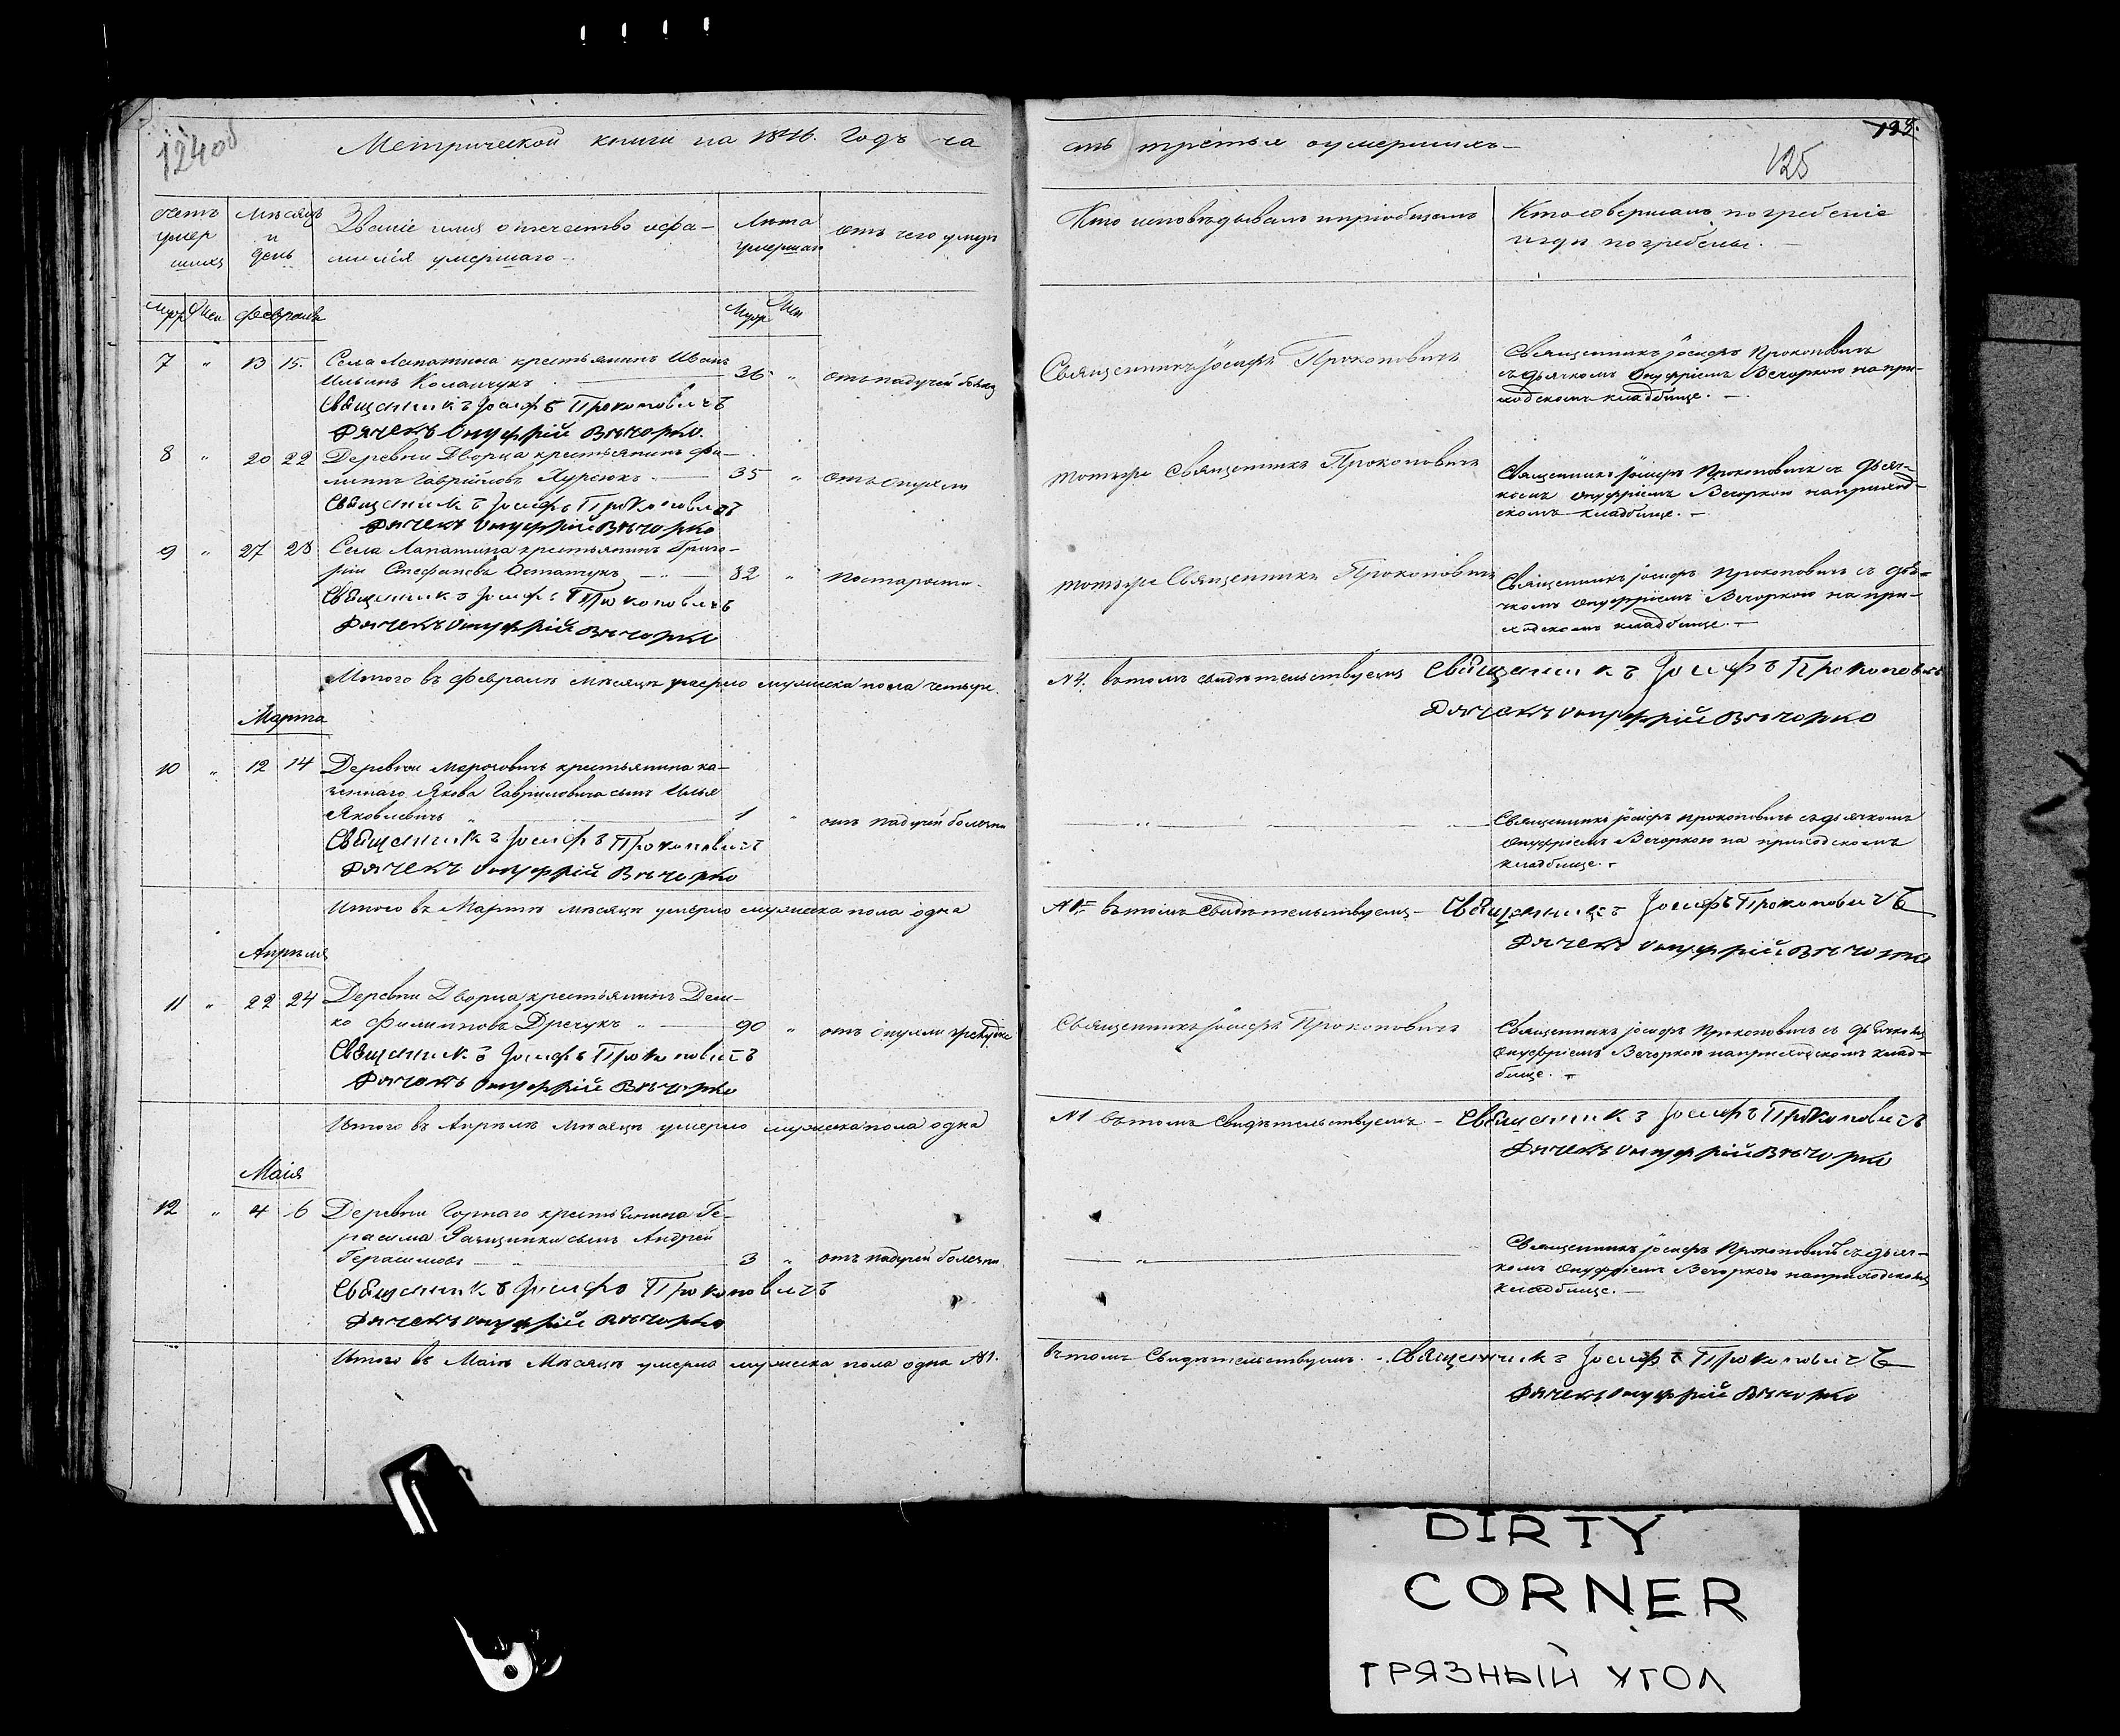 Метрической книги на 1846. Годъ ча
сть третья оумершихъ
125
Счетъ умер шихъ
Мѣсяцъ и день
Званіе имя отечество ифа-
милія умершаго
Лѣта умершаго
Отъ чего умеръ
Кто исповѣдывалъ ипріобщалъ
Кто совершалъ погребеніе
игдѣ погребены.
Муж Жен Февраль Муж Жен
7 " 13 15. Села Лапатина крестьянинъ Иванъ
Ильинъ 36 " отъ падучей болезн
Священникъ Іосифъ Прокоповичъ
Дячекъ Онуфрій Вѣчорко.
Священникъ Іосифъ Прокоповичъ
Священникъ Іосифъ Прокоповичъ
съ дьячкомъ Онуфріемъ Вечоркою на при-
ходскомъ кладбище.
8 " 20 22 Деревни Дворца крестьянинъ Фи-
липпъ Гавриловъ 35 "
Священникъ Іосифъ Прокоповичъ
Дячекъ Онуфрій Вѣчорко
тотъже Священникъ Прокоповичъ
Священникъ Іосифъ Прокоповичъ съ дьяч-
комъ Онуфріемъ Вечоркою наприход-
скомъ кладбище.
9 " 27 28 Села Лапатина крестьянинъ Григо-
рій Стефановъ Остапчукъ 82 " постарости.
Священникъ Іосифъ Прокоповичъ
Дячекъ Онуфрій Вѣчорко
тотъже Священникъ Прокоповичъ
Священникъ Іосифъ Прокоповичъ съ дья-
чкомъ Онуфріемъ Вечоркою на при-
ходскомъ кладбище.
Итого въ Февралѣ мѣсяцѣ умерло мужеска пола четыре.
N 4. вътомъ свидѣтельствуемъ Священникъ Іосифъ Прокоповичъ
Дячекъ Онуфрій Вѣчорко
Марта
10 " 12 14 Деревни крестьянина ка-
зеннаго Якова Гавриловича сынъ Илья
Яковлевичъ 1 " отъ падучей болезни
Священникъ Іосифъ Прокоповичъ
Дячекъ Онуфрій Вѣчорко
Священникъ Іосифъ Прокоповичъ съдьячкомъ
Онуфріемъ Вечоркою на приходскомъ
кладбище.
Итого въ Мартѣ мѣсяцѣ умерло мужеска пола одна
N 1. вътомъ Свидѣтельствуемъ Священникъ Іосифъ Прокоповичъ
Дячекъ Онуфрій Вѣчорко
Апрѣля
11 " 22 24 Деревни Дворца крестьянинъ Дем-
ко Филиповъ 90 " отъ опухли
Священникъ Іосифъ Прокоповичъ
Дячекъ Онуфрій Вѣчорко
Священникъ Іосифъ Прокоповичъ
Священникъ Іосифъ Прокоповичъ съ дьячкомъ
Онуфріемъ Вечоркою наприходскомъ клад-
бище.
Итого въ Апрѣлѣ Мѣсяцѣ умерло мужеска пола одна
N 1 вътомъ свидѣтельствуемъ Священникъ Іосифъ Прокоповичъ
Дячекъ Онуфрій Вѣчорко
Маія
12 " 4 6 Деревни Горнаго крестьянина Ге-
расима сынъ Андрей
Герасимовъ 3 " отъ падучей болезни
Священникъ Іосифъ Прокоповичъ
Дячекъ Онуфрій Вѣчорко
Священникъ Іосифъ Прокоповичъ съдьяч-
комъ Онуфріемъ Вечоркою наприходскомъ
кладбище.
Итого въ Маіѣ Мѣсяцѣ умерло мужеска пола одна N1.
вътомъ Свидѣтельствуемъ. Священникъ Іосифъ Прокоповичъ
Дячекъ Онуфрій Вѣчорко
DIRTY
CORNER
ГРЯЗНЫЙ УГОЛ